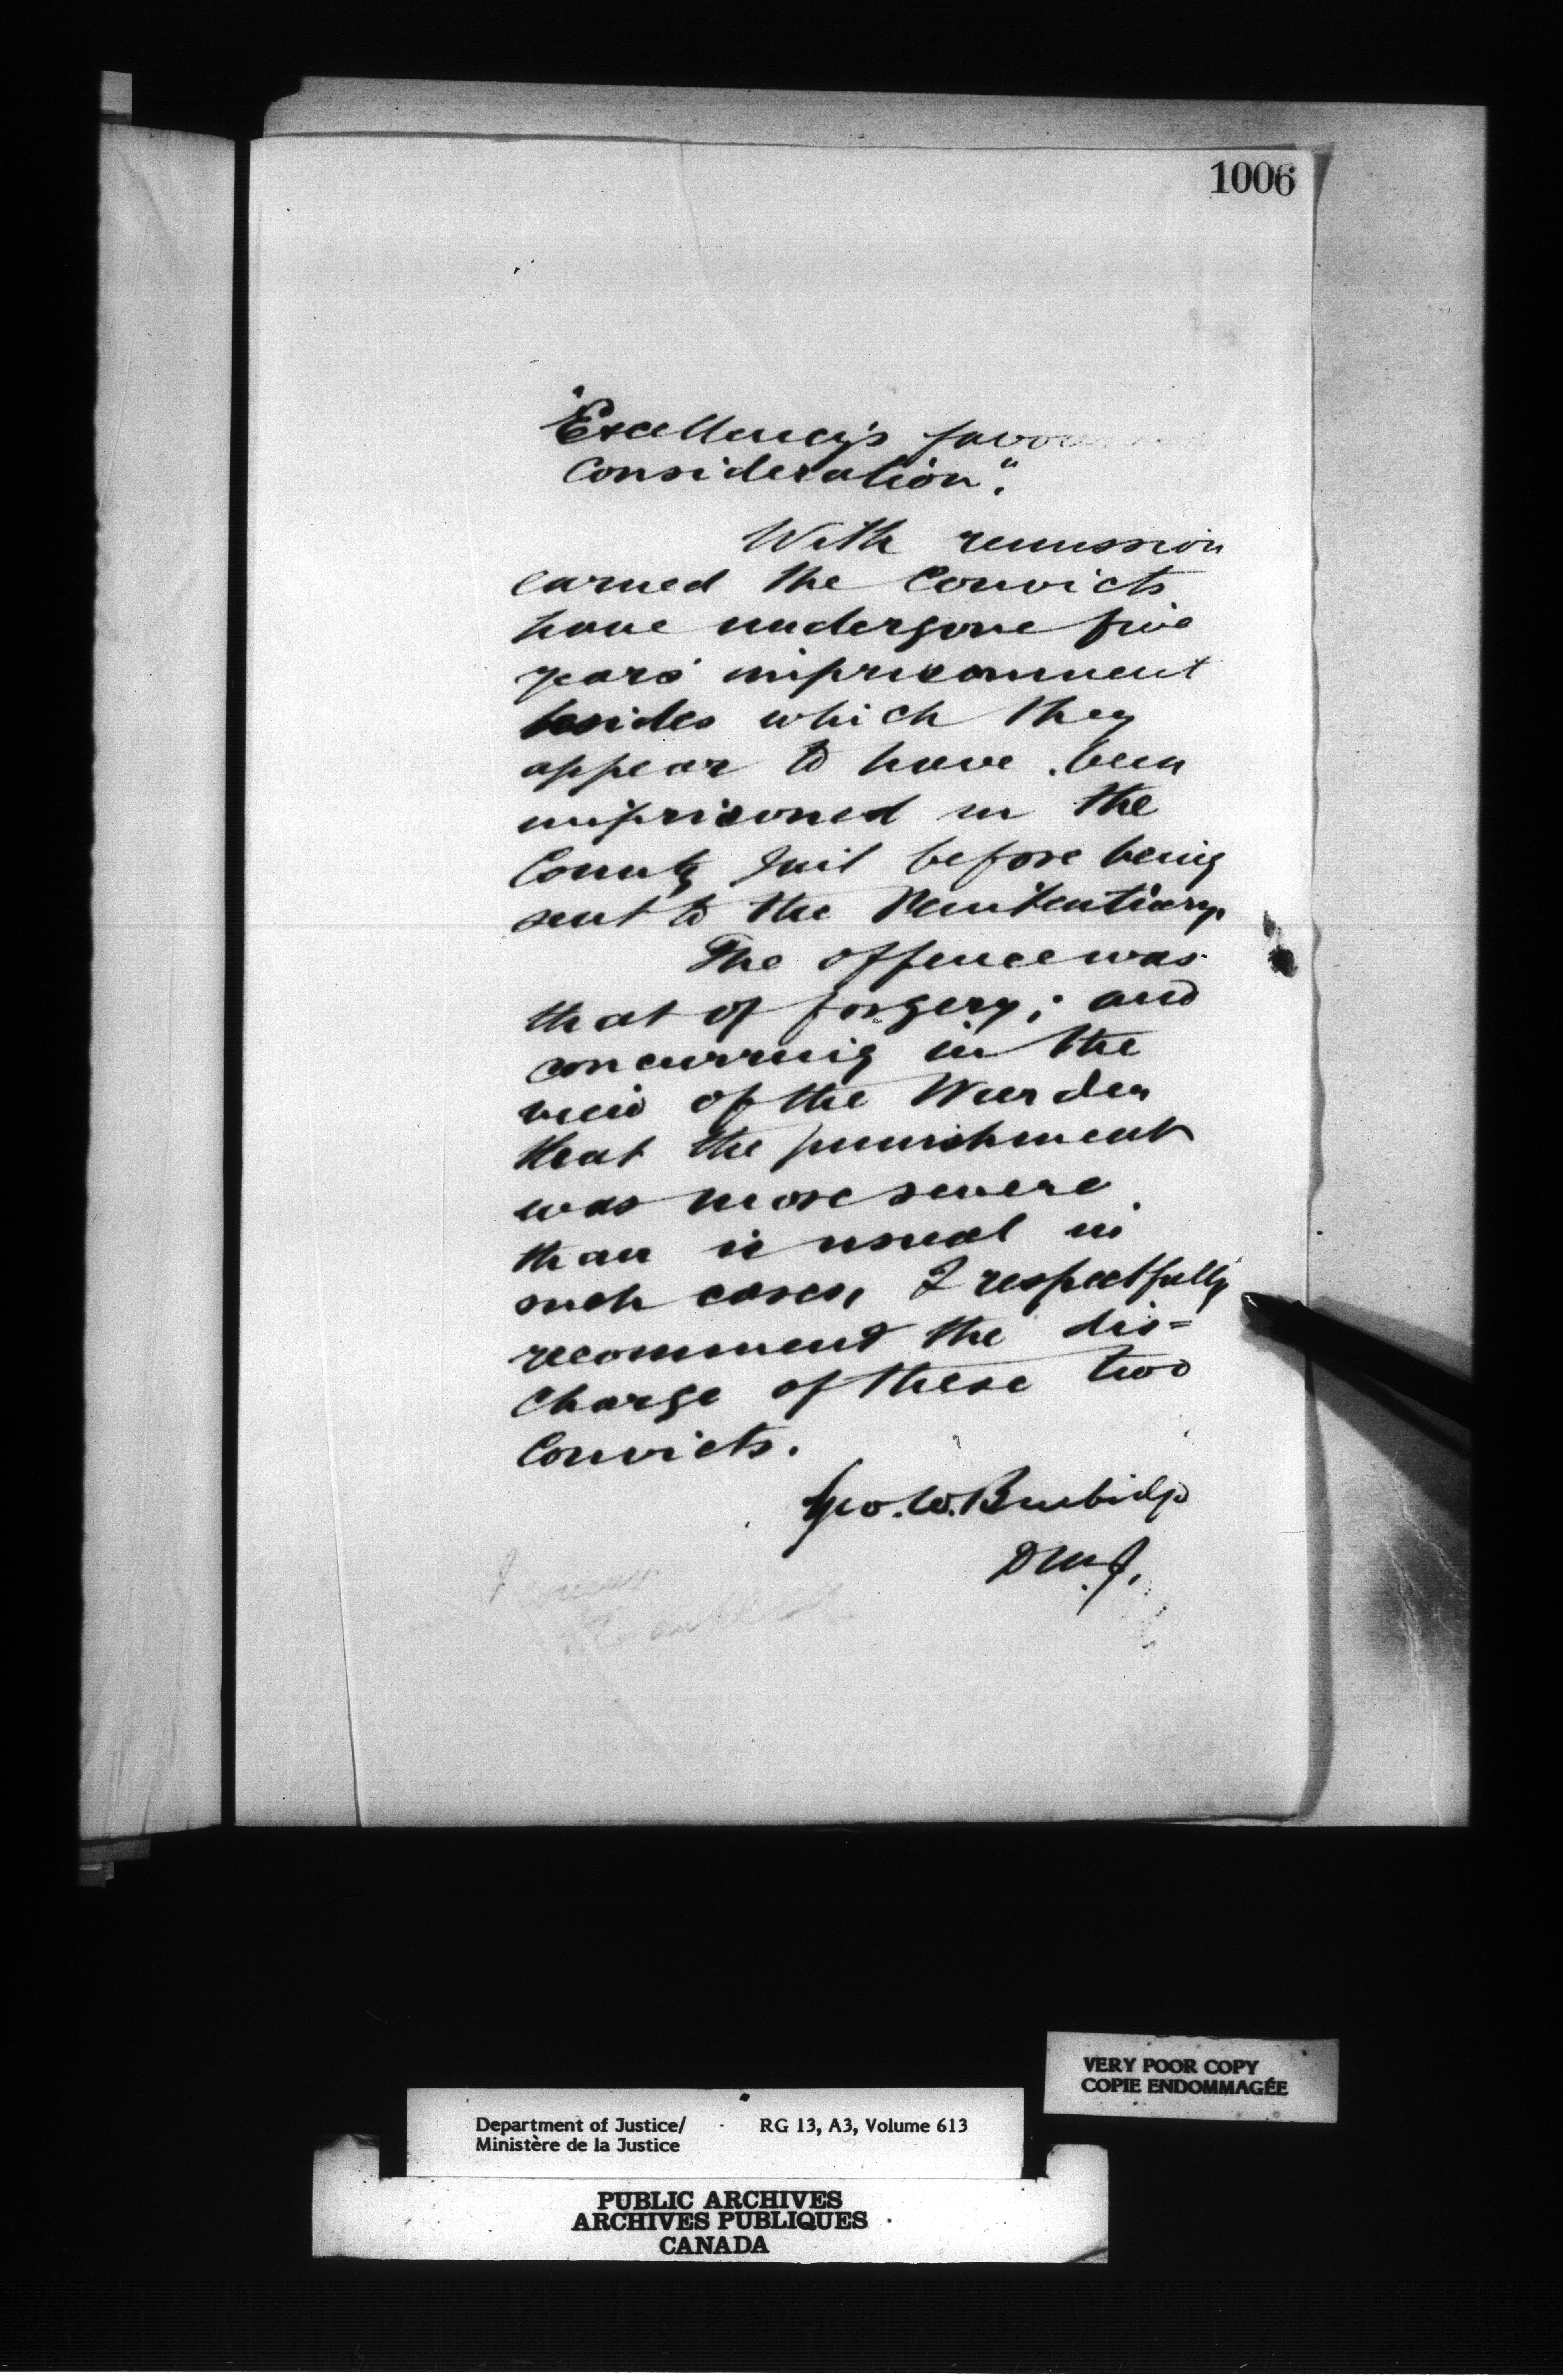 1006
"Excellency's
Consideration".
With remission
earned the Convicts
have undergone five
years' imprisonment
besides which they
appear to have been
imprisoned in the
County Jail before being
sent to the Penitentiary.
The offence was
that of forgery; and
concurring in the
view of the Warden
that the punishment
was more severe
than is usual in
such cases, I respectfully
recommend the dis=
charge of these two
Convicts.
Geo. W. Burbidge
D.M.J.
I concur
VERY POOR COPY
COPIE ENDOMMAGÉE
Department of Justice/ RG 13, A3, Volume 613
Ministère de la Justice
PUBLIC ARCHIVES
ARCHIVES PUBLIQUES
CANADA